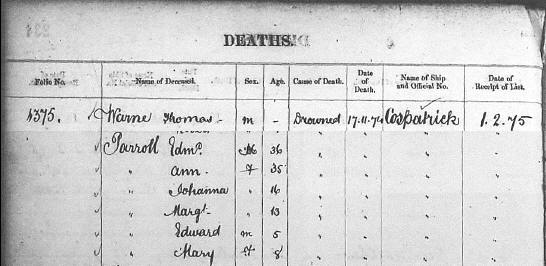 DEATHS.
Folio No. Name of Deceased. Sex. Age. Cause of Death. Date of Death. Name of Ship and Official No. Date of Receipt of List.
4375. Warne Thomas - m - Drowned 17.11.74 Cospatrick 1.2.75
Parroll Edmd. M 36 " " " "
" Ann. F 35 " " " "
" Johanna " 16 " " " "
" Margt. " 13 " " " "
" Edward m 5 " " " "
" Mary F 8 " " " "